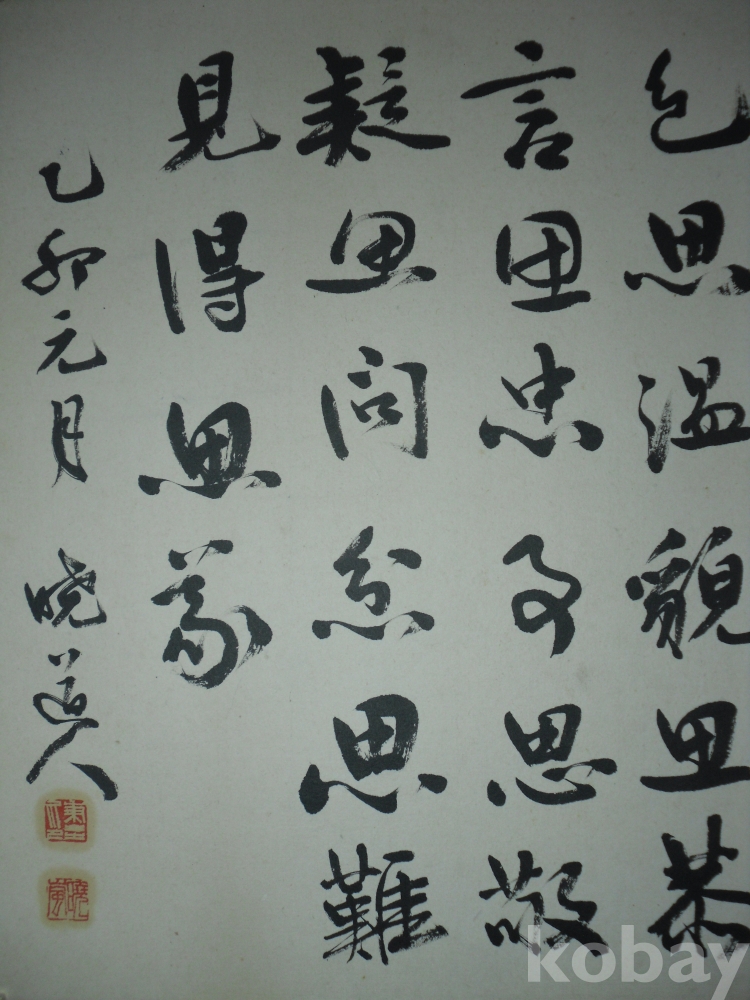 色思溫貌思恭
言思忠事思敬
疑思問忿思難
見得思義
乙卯元月 曉道人
kobay